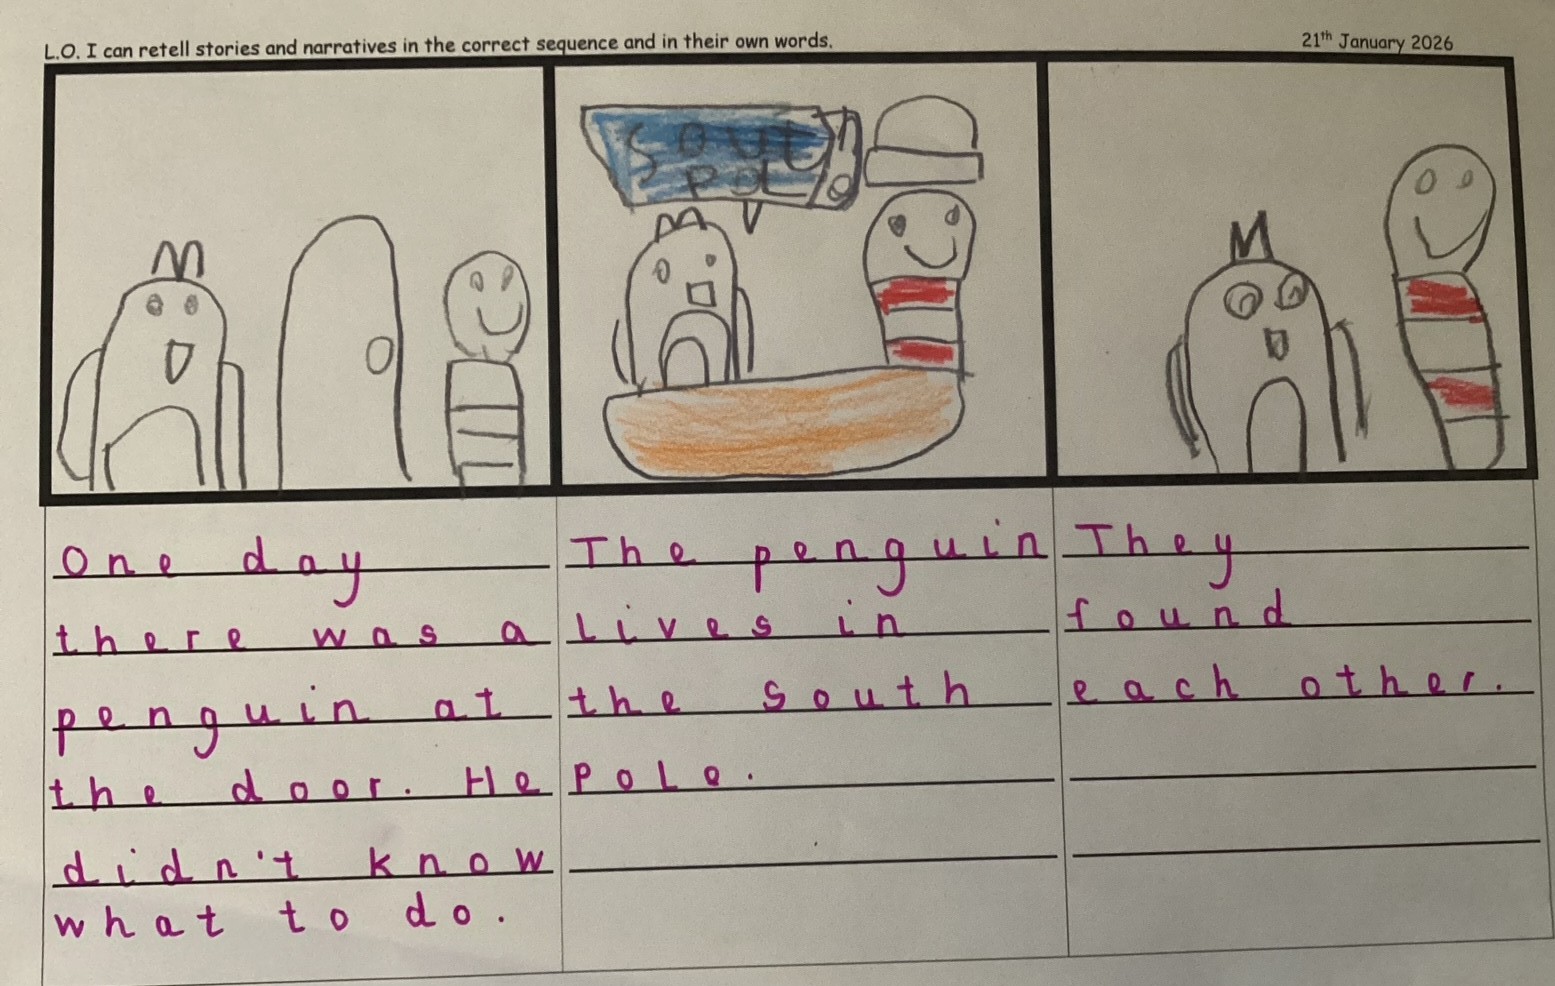 L.O. I can retell stories and narratives in the correct sequence and in their own words.
21th January 2026
SOUTh
POLe
One day
there was a
penguin at
the door. He
didn't know
what to do.
The penguin
lives in
the south
pole.
They
found
each other.